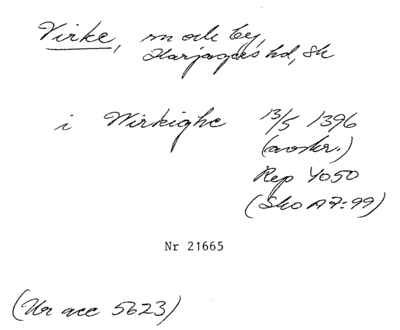 Virke, sn och by,
Harjagers hd, Sk
i Wirkighe 13/5 1396
(avskr.)
Rep 4050
(Sko A 7:99)
Nr 21665
(Ur acc 5623)